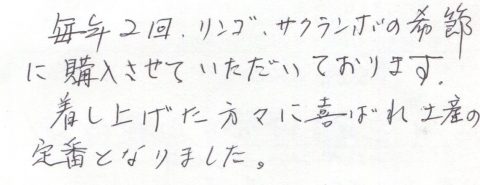 毎年2回、リンゴ、サクランボの希節
に購入させていただいております。
着し上げた方々に喜ばれ土産の
定番となりました。